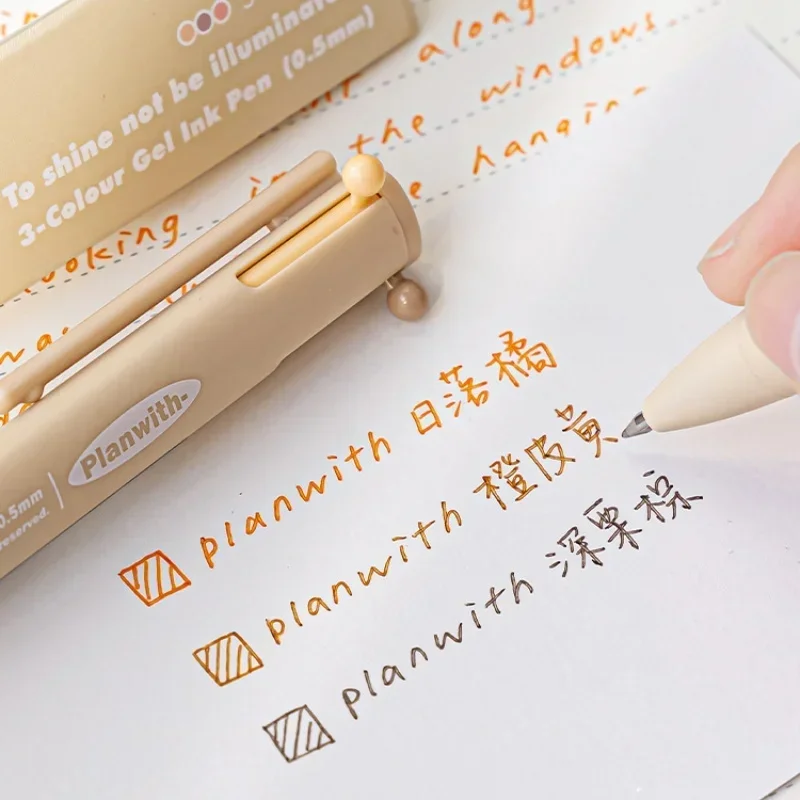 To shine not be illuminate
3-Colour Gel Ink Pen (0.5mm)
along
the windows.
hanging
Planwith-
0.5mm
reserved.
planwith 日落橘
planwith 橙皮黄
planwith 深栗棕